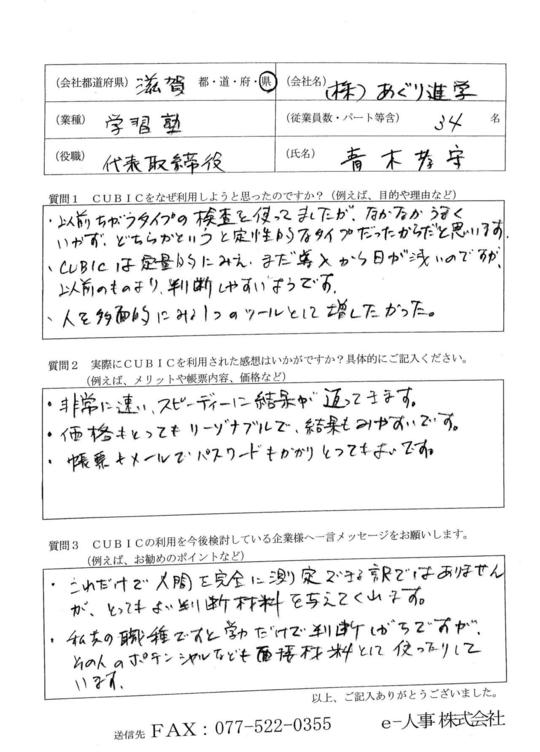 (会社都道府県) 滋賀 都・道・府・県 (会社名) (株) あぐり進学
(業種) 学習塾 (従業員数・パート等含) 34 名
(役職) 代表取締役 (氏名) 青木 守
質問1 CUBICをなぜ利用しようと思ったのですか？(例えば、目的や理由など)
・以前ちがうタイプの検査を使ってましたが、なかなかうまく
いかず、どちらかというと定性的なタイプだったからだと思います。
・CUBICは定量的にみえ、まだ導入から日が浅いのですが、
以前のものより、判断しやすいようです。
・人を多面的にみる1つのツールとして増したかった。
質問2 実際にCUBICを利用された感想はいかがですか？具体的にご記入ください。
(例えば、メリットや帳票内容、価格など)
・非常に速い、スピーディーに結果が返ってきます。
・価格もとってもリーゾナブルで、結果もみやすいです。
・帳票もメールでパスワードもかかりとってもよいです。
質問3 CUBICの利用を今後検討している企業様へ一言メッセージをお願いします。
(例えば、お勧めのポイントなど)
・これだけで人間を完全に測定できる訳ではありません
が、とってもよい判断材料を与えてくれます。
・私共の職種ですと学力だけで判断しがちですが、
その人のポテンシャルなども面接材料として使ったりして
います。
以上、ご記入ありがとうございました。
送信先 FAX：077-522-0355 e-人事株式会社